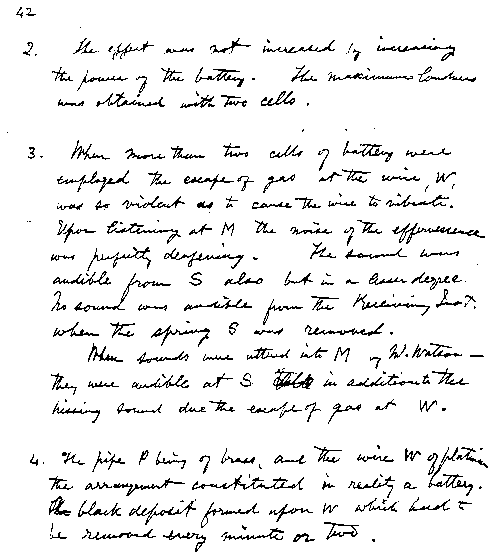 42
2. The effect was not increased by increasing
the power of the battery. The maximum loudness
was obtained with two cells.
3. When more than two cells of battery were
employed the escape of gas at the wire, W,
was so violent as to cause the wire to vibrate.
Upon listening at M the noise of the effervescence
was perfectly deafening. The sound was
audible from S also but in a lesser degree.
No sound was audible from the Receiving Inst.
when the spring S was removed.
When sounds were uttered into M by Mr. Watson —
they were audible at S in addition to the
hissing sound due the escape of gas at W.
4. The pipe P being of brass, and the wire W of platinum
the arrangement constituted in reality a battery.
black deposit formed upon W which had to
be removed every minute or two.